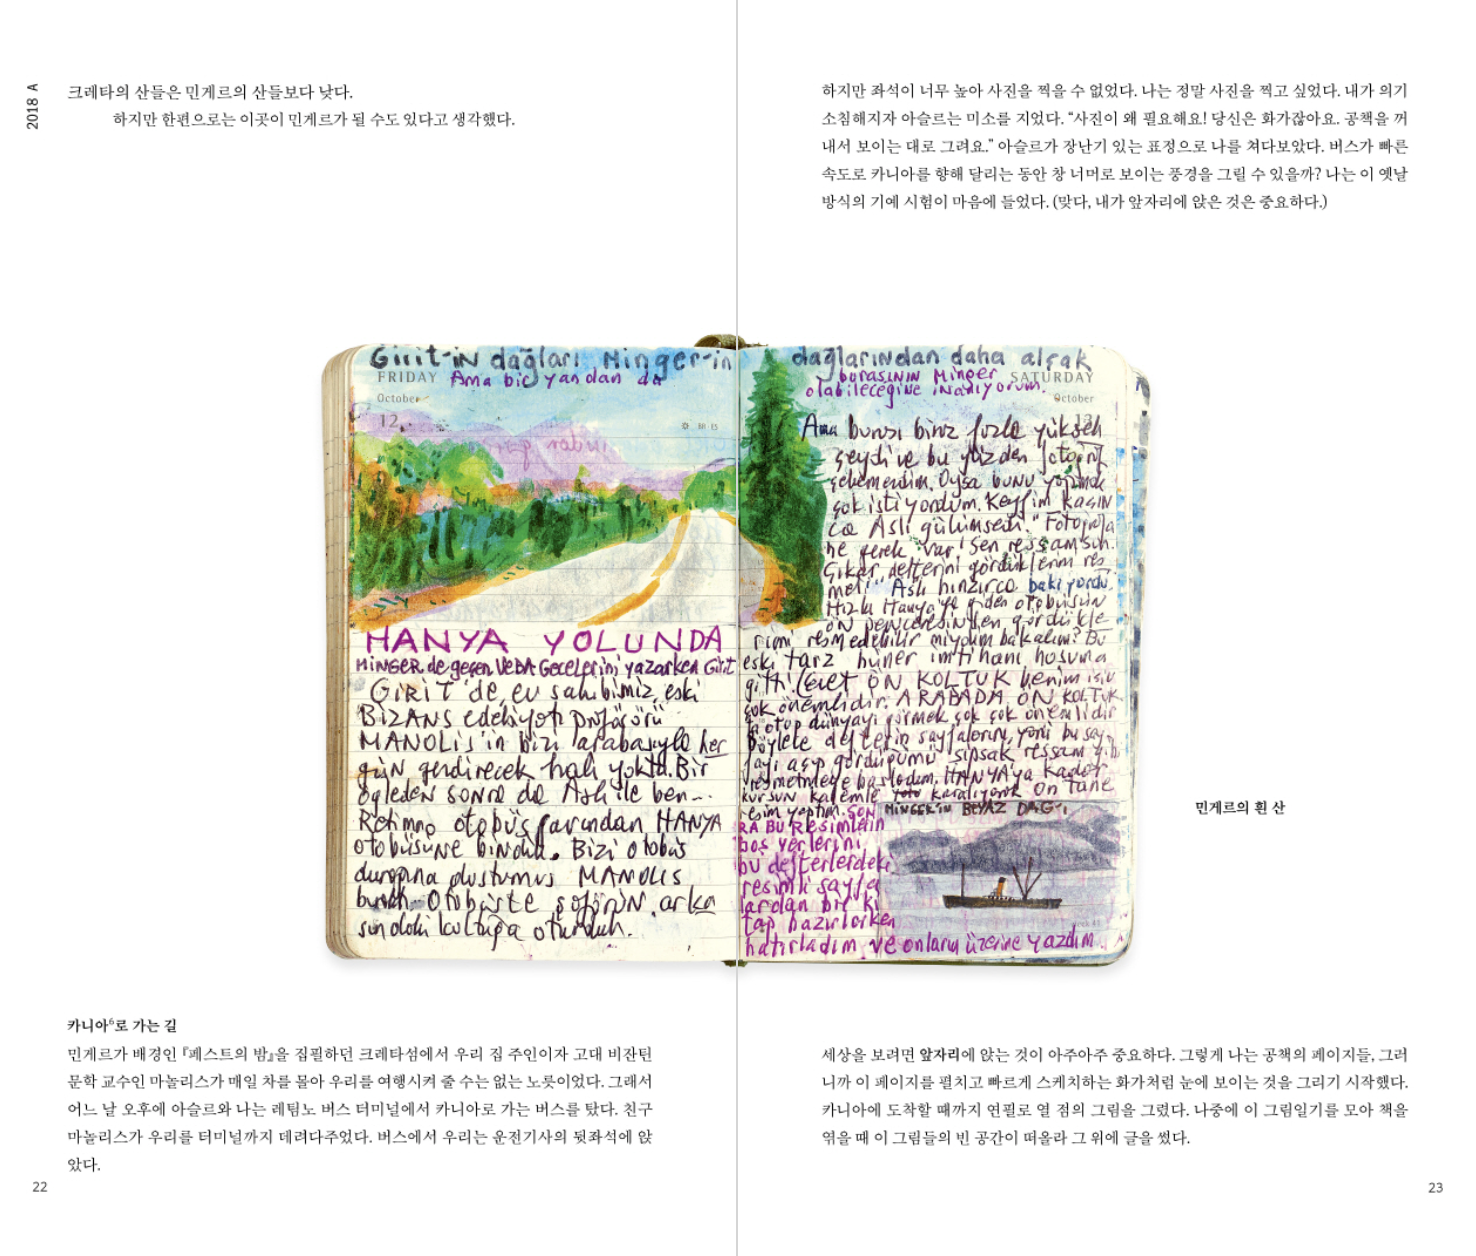 2018 A
크레타의 산들은 민게르의 산들보다 낮다.
하지만 한편으로는 이곳이 민게르가 될 수도 있다고 생각했다.
하지만 좌석이 너무 높아 사진을 찍을 수 없었다. 나는 정말 사진을 찍고 싶었다. 내가 의기
소침해지자 아슬르는 미소를 지었다. “사진이 왜 필요해요! 당신은 화가잖아요. 공책을 꺼
내서 보이는 대로 그려요.” 아슬르가 장난기 있는 표정으로 나를 쳐다보았다. 버스가 빠른
속도로 카니아를 향해 달리는 동안 창 너머로 보이는 풍경을 그릴 수 있을까? 나는 이 옛날
방식의 기예 시험이 마음에 들었다. (맞다, 내가 앞자리에 앉은 것은 중요하다.)
Girit-in dağları Minger-in
FRIDAY Ama bir yandan da
October
12
HANYA YOLUNDA
MiNGER de geçen VEBA Gecelerini yazarken Girit
GiRiT'de, ev sahibimiz, eski
BiZANS edebiyatı profösörü
MANOLiS'in bizi arabasıyla her
gün gezdirecek hali yoktu. Bir
öğleden sonra da Aslı ile ben
Retimno otobüs garından HANYA
otobüsüne bindik. Bizi otobüs
durağına MANOLiS
Otobüste şoförün arka
koltuğa oturduk.
dağlarından daha alçak
burasının Minger SATURDAY
olabileceğine inanıyorum.
October
13
Ama burası biraz fazla yüksek
şeydi ve bu yüzden fotoğraf
çekemedim. Oysa bunu yapmak
çok istiyordum. Keyfim kaçın
ca Aslı gülümsedi. "Fotoğrafa
ne gerek var! Sen ressamsın.
Çıkar defterini gördüklerini res
met." Aslı hınzırca bakıyordu.
Hızla Hanya'ya giden otobüsün
ön penceresinden gördükle
rimi resmedebilir miydim bakalım? Bu
eski tarz hüner imtihanı hoşuma
gitti. (evet ÖN KOLTUK benim için
çok önemlidir. ARABADA ÖN KOLTUK
dünyayı görmek çok çok önemlidir
Böylece defterin sayfalarını, yani bu say
fayı açıp gördüğümü şipşak ressam gib
resmetmeye başladım. HANYA'ya kadar
kurşun kalemle on tane
resim yaptım. SON
RA BU Resimlerin
boş yerlerini
bu defterlerdeki
resimli sayfa
lardan bir ki
tap hazırlarken
hatırladım ve onların üzerine yazdım.
MiNGER'iN BEYAZ DAĞI
민게르의 흰 산
카니아6로 가는 길
민게르가 배경인 『페스트의 밤』을 집필하던 크레타섬에서 우리 집 주인이자 고대 비잔틴
문학 교수인 마놀리스가 매일 차를 몰아 우리를 여행시켜 줄 수는 없는 노릇이었다. 그래서
어느 날 오후에 아슬르와 나는 레팀노 버스 터미널에서 카니아로 가는 버스를 탔다. 친구
마놀리스가 우리를 터미널까지 데려다주었다. 버스에서 우리는 운전기사의 뒷좌석에 앉
았다.
22
세상을 보려면 앞자리에 앉는 것이 아주아주 중요하다. 그렇게 나는 공책의 페이지들, 그러
니까 이 페이지를 펼치고 빠르게 스케치하는 화가처럼 눈에 보이는 것을 그리기 시작했다.
카니아에 도착할 때까지 연필로 열 점의 그림을 그렸다. 나중에 이 그림일기를 모아 책을
엮을 때 이 그림들의 빈 공간이 떠올라 그 위에 글을 썼다.
23